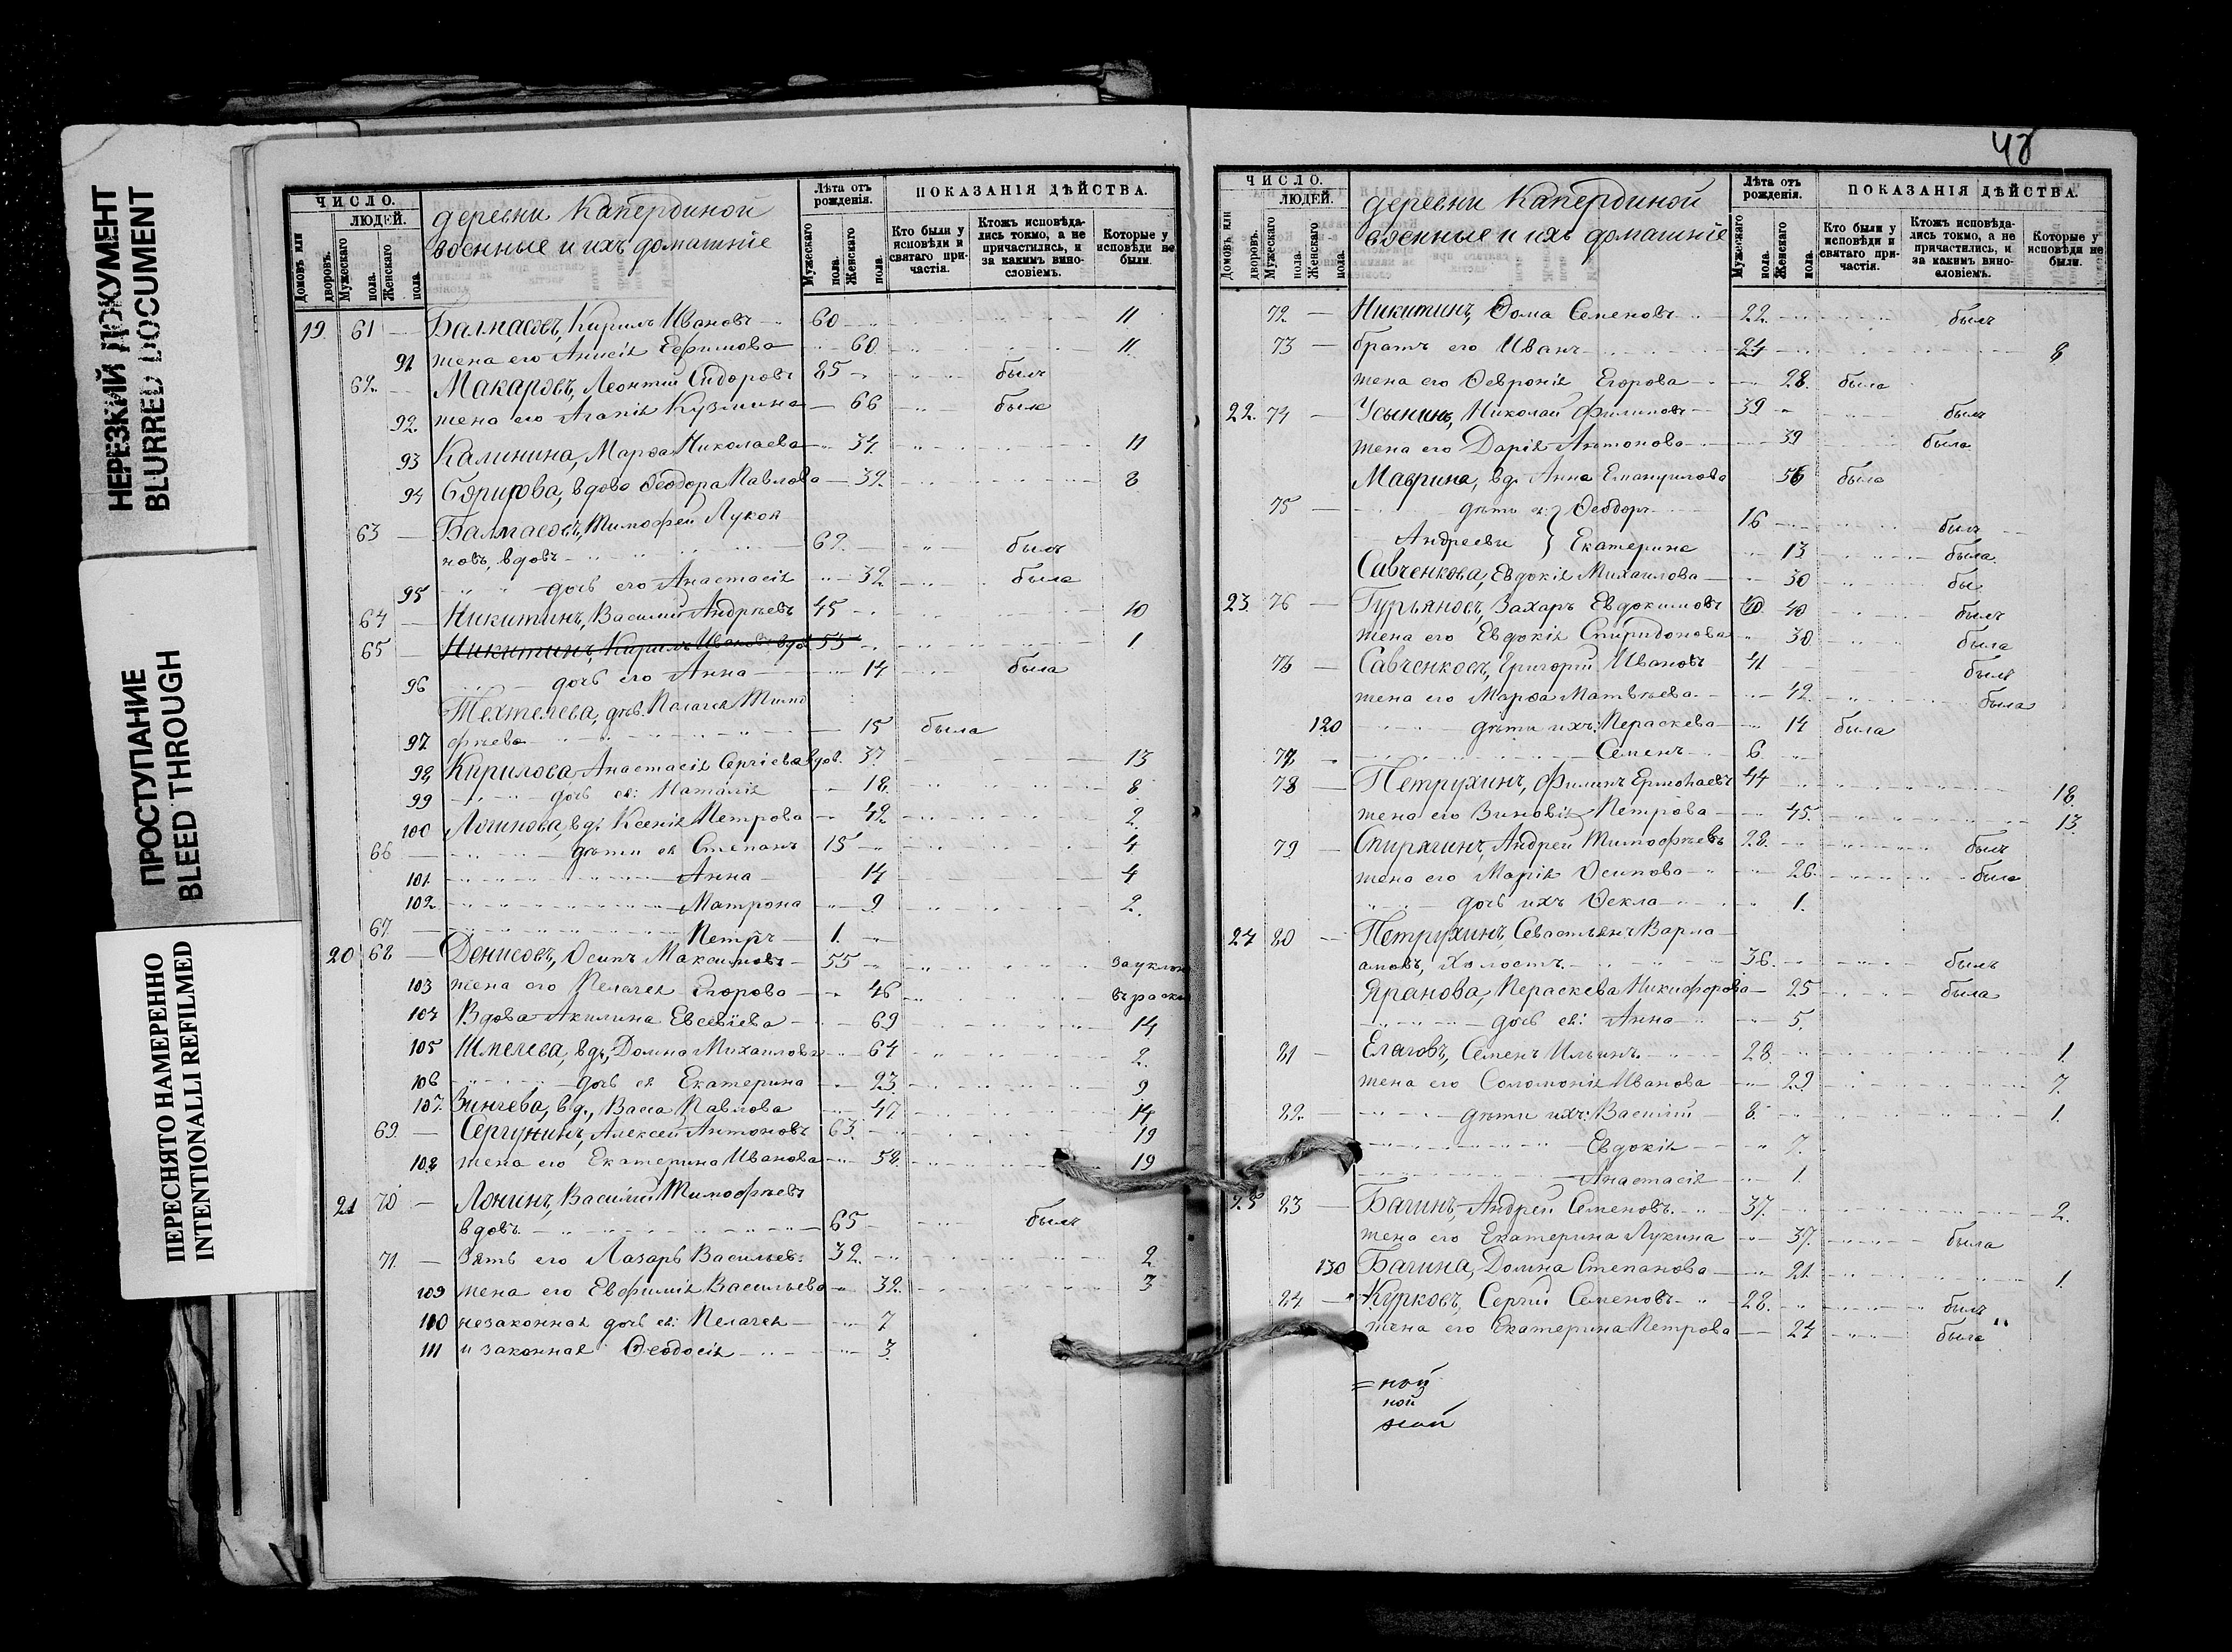 НЕРЕЗКИЙ ДОКУМЕНТ
BLURRED DOCUMENT
ПРОСТУПАНИЕ
BLEED THROUGH
ПЕРЕСНЯТО НАМЕРЕННО
INTENTIONALLI REFILMED
ЧИСЛО.
ЛЮДЕЙ.
Домовъ или дворовъ.
Мужескаго пола.
Женскаго пола.
деревни Капердиной
военные и ихъ домашніе
Лѣта отъ рожденія.
Мужескаго пола.
Женскаго пола.
ПОКАЗАНІЯ ДѢЙСТВА.
Кто были у исповѣди и святаго причастія.
Ктожъ исповѣдались токмо, а не причастились, и за какимъ винословіемъ.
Которые у исповѣди не были.
19 61 Балмасовъ, Кирилъ Ивановъ 60 11
91 жена его Анисія Ефимова 60 11
62 Макаровъ, Леонтій Сидоровъ 85 былъ
92 жена его Агапія Кузмина 66 была
93 Калинина, Марѳа Николаева 34 11
94 вдова Ѳеодора Павлова 32 8
63 Тимофей Лукоя
новъ, вдовъ 62 былъ
95 дочь его Анастасія 32 была
64 Никитинъ, Василій Андрѣевъ 45 10
65 Никитинъ, Кирилъ Ивановъ вдов 53 1
96 дочь его Анна 14 была
Пелагея Тимо
97 фѣева 15 была
98 Кирилова Анастасія Сергіева вдов. 37 13
99 дочь ея: Наталія 18 8
100 Логинова, вд. Ксенія Петрова 42 2
66 дѣти ея Степанъ 15 4
101 Анна 14 4
102 Матрона 9 2
67 Петръ 1
20 68 Денисовъ, Осипъ Максимовъ 55 за уклон
103 жена его Пелагея Егорова 46 въ раско
104 Вдова Акилина Евсевіева 69 14
105 Шмелева, вд., Домна Михаилова 64 2
106 дочь ея Екатерина 23 9
107 Зинчева, вд., Васса Павлова 47 14
69 Сергунинъ, Алексей Антоновъ 63 19
108 жена его Екатерина Иванова 58 19
21 70 Лонинъ, Василій Тимофѣевъ
вдовъ 65 былъ
71 Зять его Лазарь Васильев. 32 2
109 жена его Евфимія Васильева 32 3
110 незаконная дочь ея: Пелагея 7
111 и законная Ѳеодосія 3
48
ЧИСЛО.
ЛЮДЕЙ.
Домовъ или дворовъ.
Мужескаго пола.
Женскаго пола.
деревни Капердиной
военные и ихъ домашніе
Лѣта отъ рожденія.
Мужескаго пола.
Женскаго пола.
ПОКАЗАНІЯ ДѢЙСТВА.
Кто были у исповѣди и святаго причастія.
Ктожъ исповѣдались токмо, а не причастились, и за какимъ винословіемъ.
Которые у исповѣди не были.
72 Никитинъ, Ѳома Семеновъ 22 былъ
73 братъ его Иванъ 24 8
жена его Ѳевронія Егорова 28 была
22 74 Усынинъ, Николай Филиповъ 39 былъ
жена его Дарія Антонова 39 была
Маврина, вд. Анна Емануилова 56 была
75 дѣти ея: Ѳеодоръ 16 былъ
Андреевы } Екатерина 13 была
Савченкова, Евдокія Михаилова 30 бы
23 76 Гурьяновъ, Захаръ Евдокимовъ 40 40 былъ
жена его Евдокія Спиридонова 30 была
76 Савченковъ, Григорій Ивановъ 41 былъ
жена его Марѳа Матвѣева 42 была
120 дѣти ихъ: Пераскева 14 была
77 Семенъ 6
78 Петрухинъ, Филипъ Ермолаевъ 44 18
жена его Зиновія Петрова 45 13
79 Спирягинъ, Андрей Тимофѣевъ 28 былъ
жена его Марія Осипова 26 была
дочь ихъ Ѳекла 1
24 80 Петрухинъ, Севастьянъ Варла
амовъ, холостъ 36 былъ
Яранова, Пераскева Никифорова 25 была
дочь ея: Анна 5
81 Елаговъ, Семенъ Ильинъ 28 1
жена его Соломонія Иванова 29 7
82 дѣти ихъ: Василій 8 1
Евдокія 7
Анастасія 1
25 83 Багинъ, Андрей Семеновъ 37 2
жена его Екатерина Лукина 37 была
130 Багина, Домна Степанова 21 1
84 Курковъ, Сергій Семеновъ 28 былъ
жена его Екатерина Петрова 24 была
= ной
ной
ной